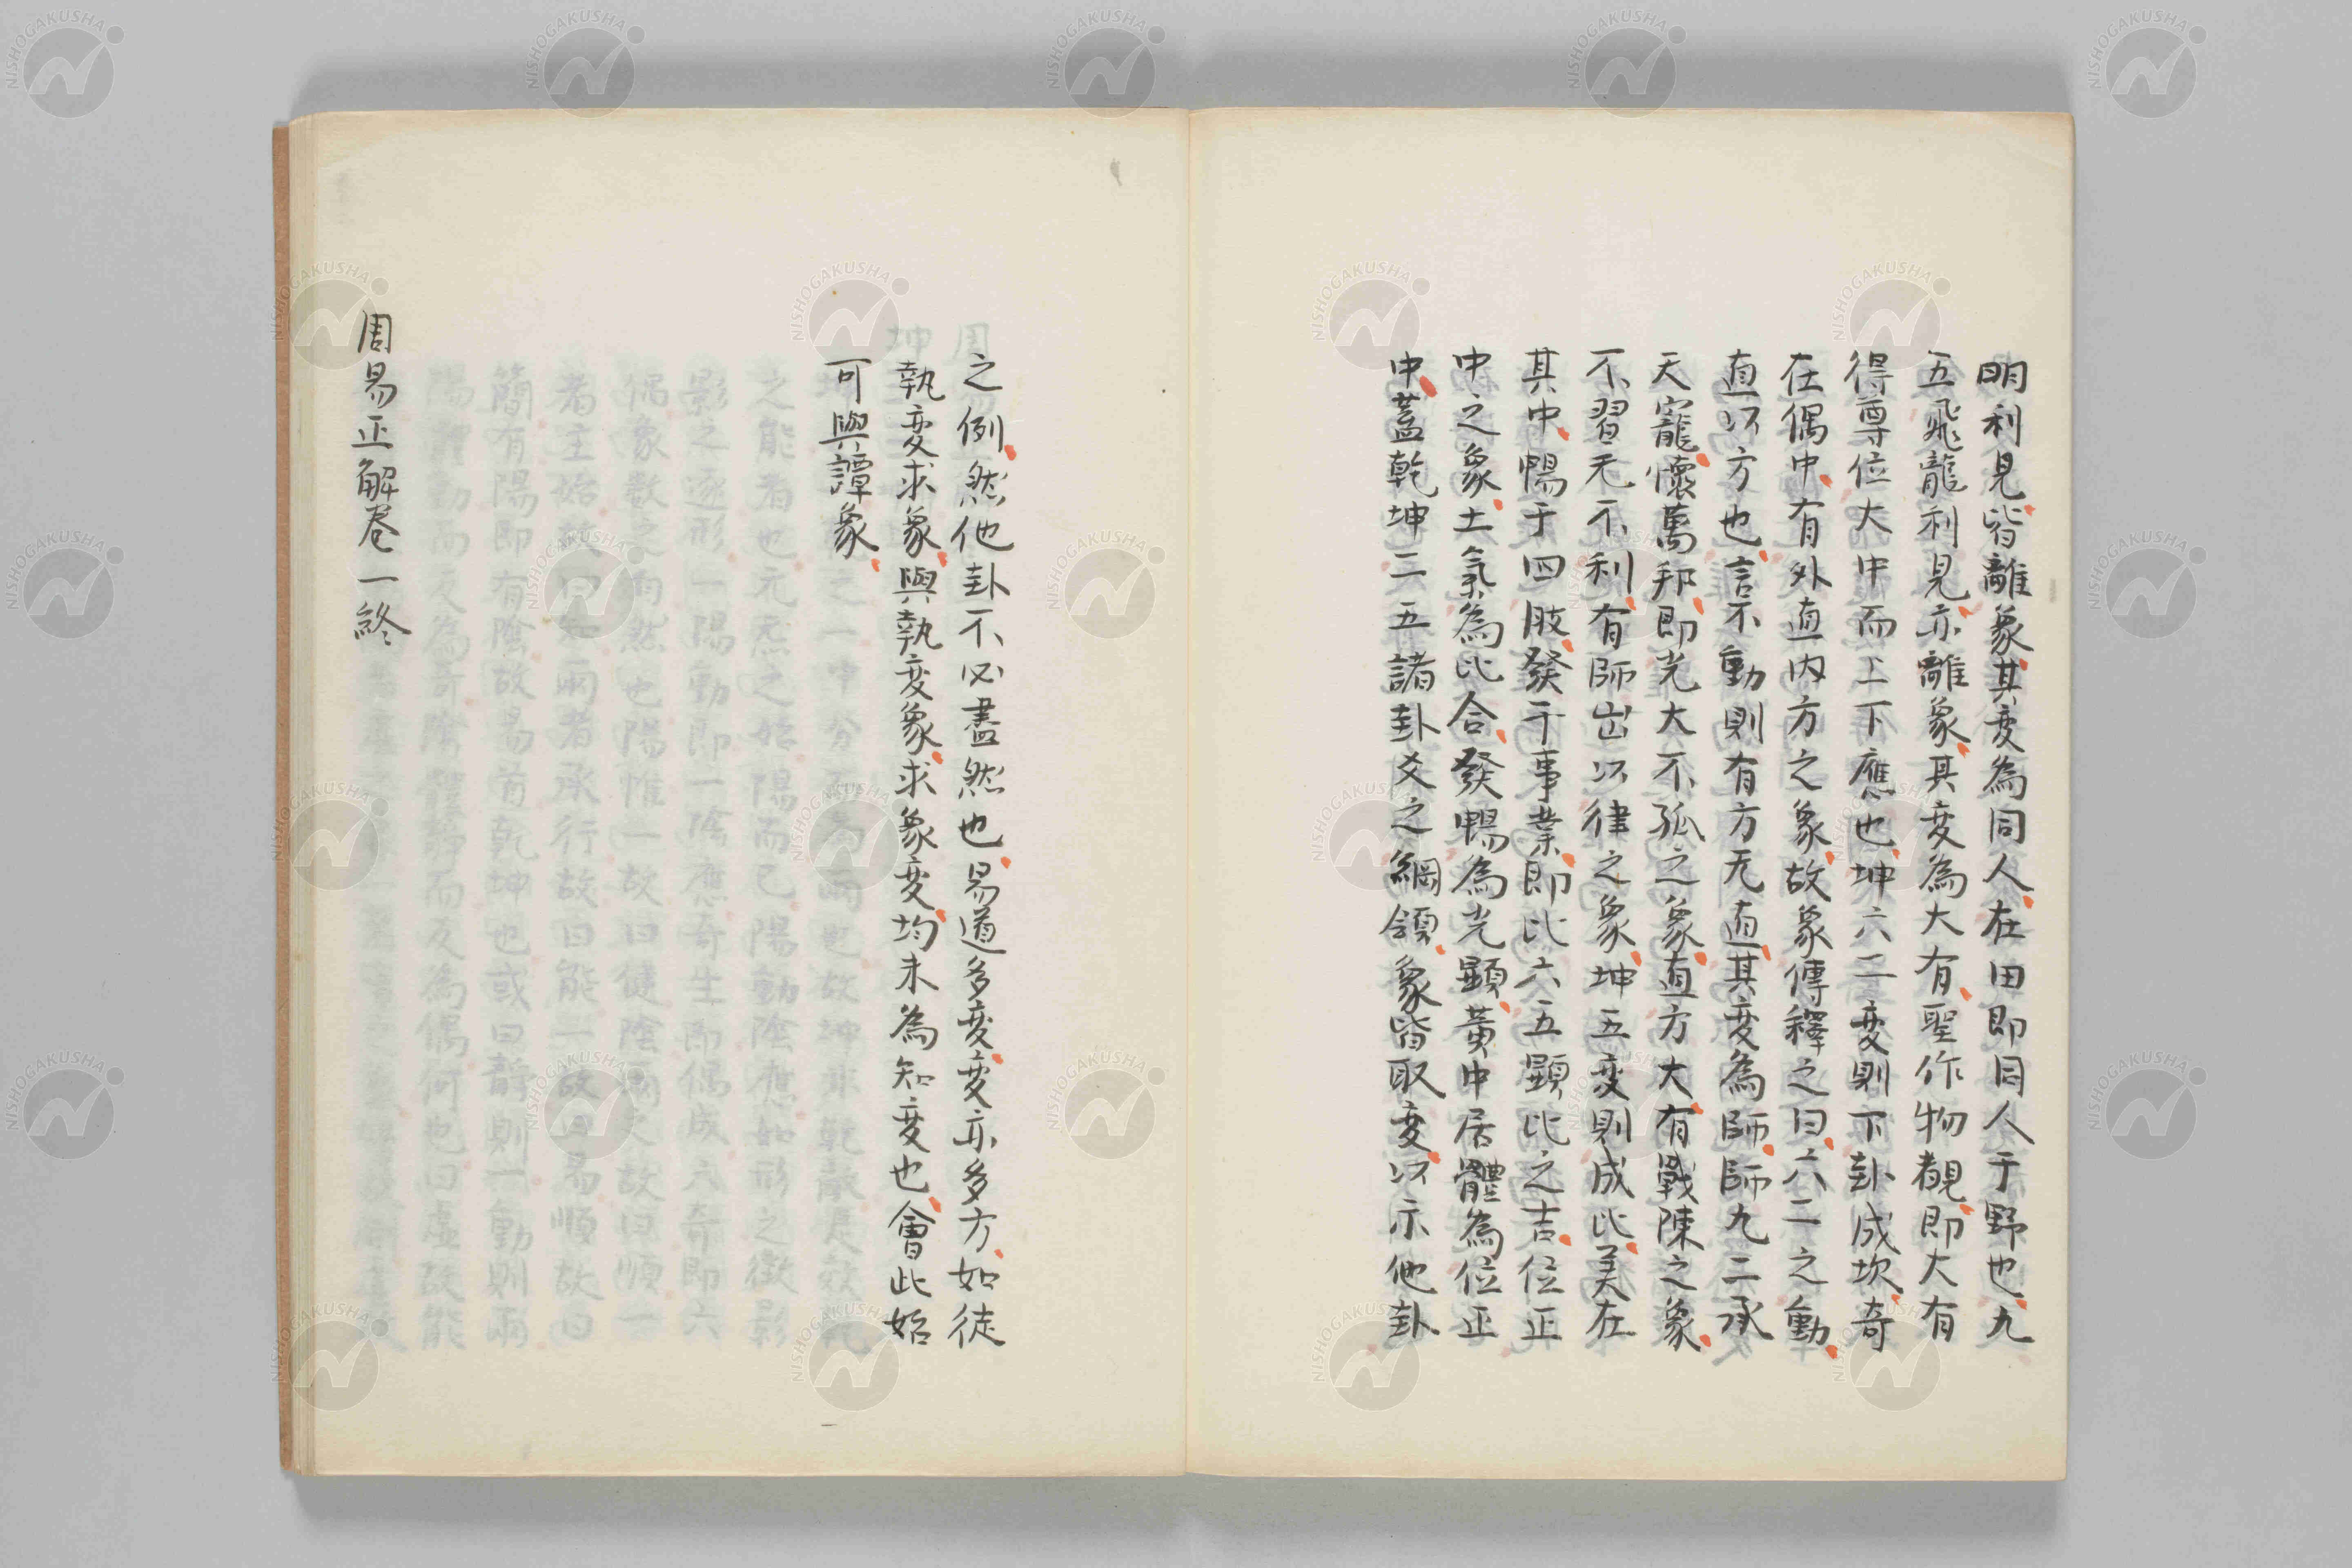 明利見皆離象其変為同人在田即同人于野也九
五飛龍利見亦離象其変為大有聖作物覩即大有
得尊位大中而上下應也坤六二変則下卦成坎奇
在偶中有外直内方之象故象傳釋之曰六二之動
直以方也言不動則有方无直其変為師師九二承
天寵懷萬邦即光大不孤之象直方大有戰陳之象
不習无不利有師出以律之象坤五変則成比美在
其中暢于四肢發于事業即比六五顯比之吉位正
中之象土氣為比合發暢為光顯黃中居體為位正
中蓋乾坤二五諸卦爻之綱領象皆取変以示他卦
之例然他卦不必盡然也易道多変変亦多方如徒
執変求象與執変象求象変均未為知変也會此始
可與譚象
周易正解卷一終
NISHOGAKUSHA